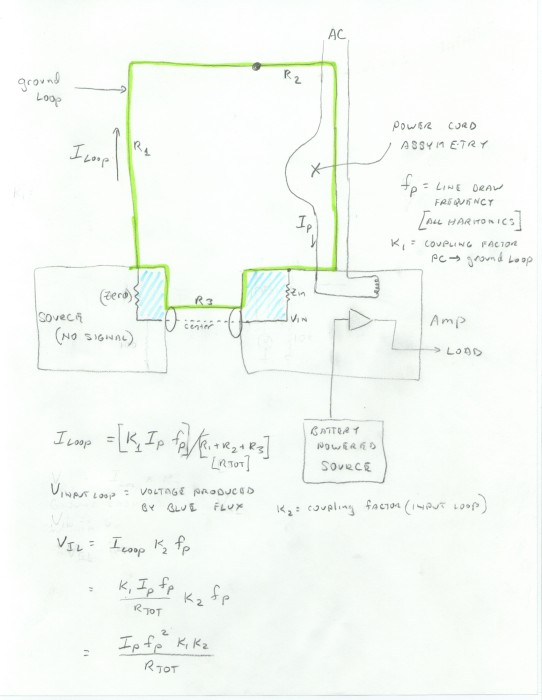 AC
R2
ground
Loop
R1
I Loop
POWER CORD
ASSYMETRY
fp = LINE DRAW
FREQUENCY
[ALL HARMONICS]
K1 = COUPLING FACTOR
PC → ground LOOP
Ip
(Zero)
R3
Zin
SOURCE
(NO SIGNAL)
center
VIN
Amp
→ LOAD
BATTERY
POWERED
SOURCE
I LOOP = [K1 Ip fp] / [R1 + R2 + R3]
[RTOT]
VINPUT LOOP = VOLTAGE PRODUCED
BY BLUE FLUX
K2 = coupling factor (INPUT LOOP)
VIL = ILOOP K2 fp
= K1 Ip fp / RTOT K2 fp
= Ip fp² K1 K2 / RTOT